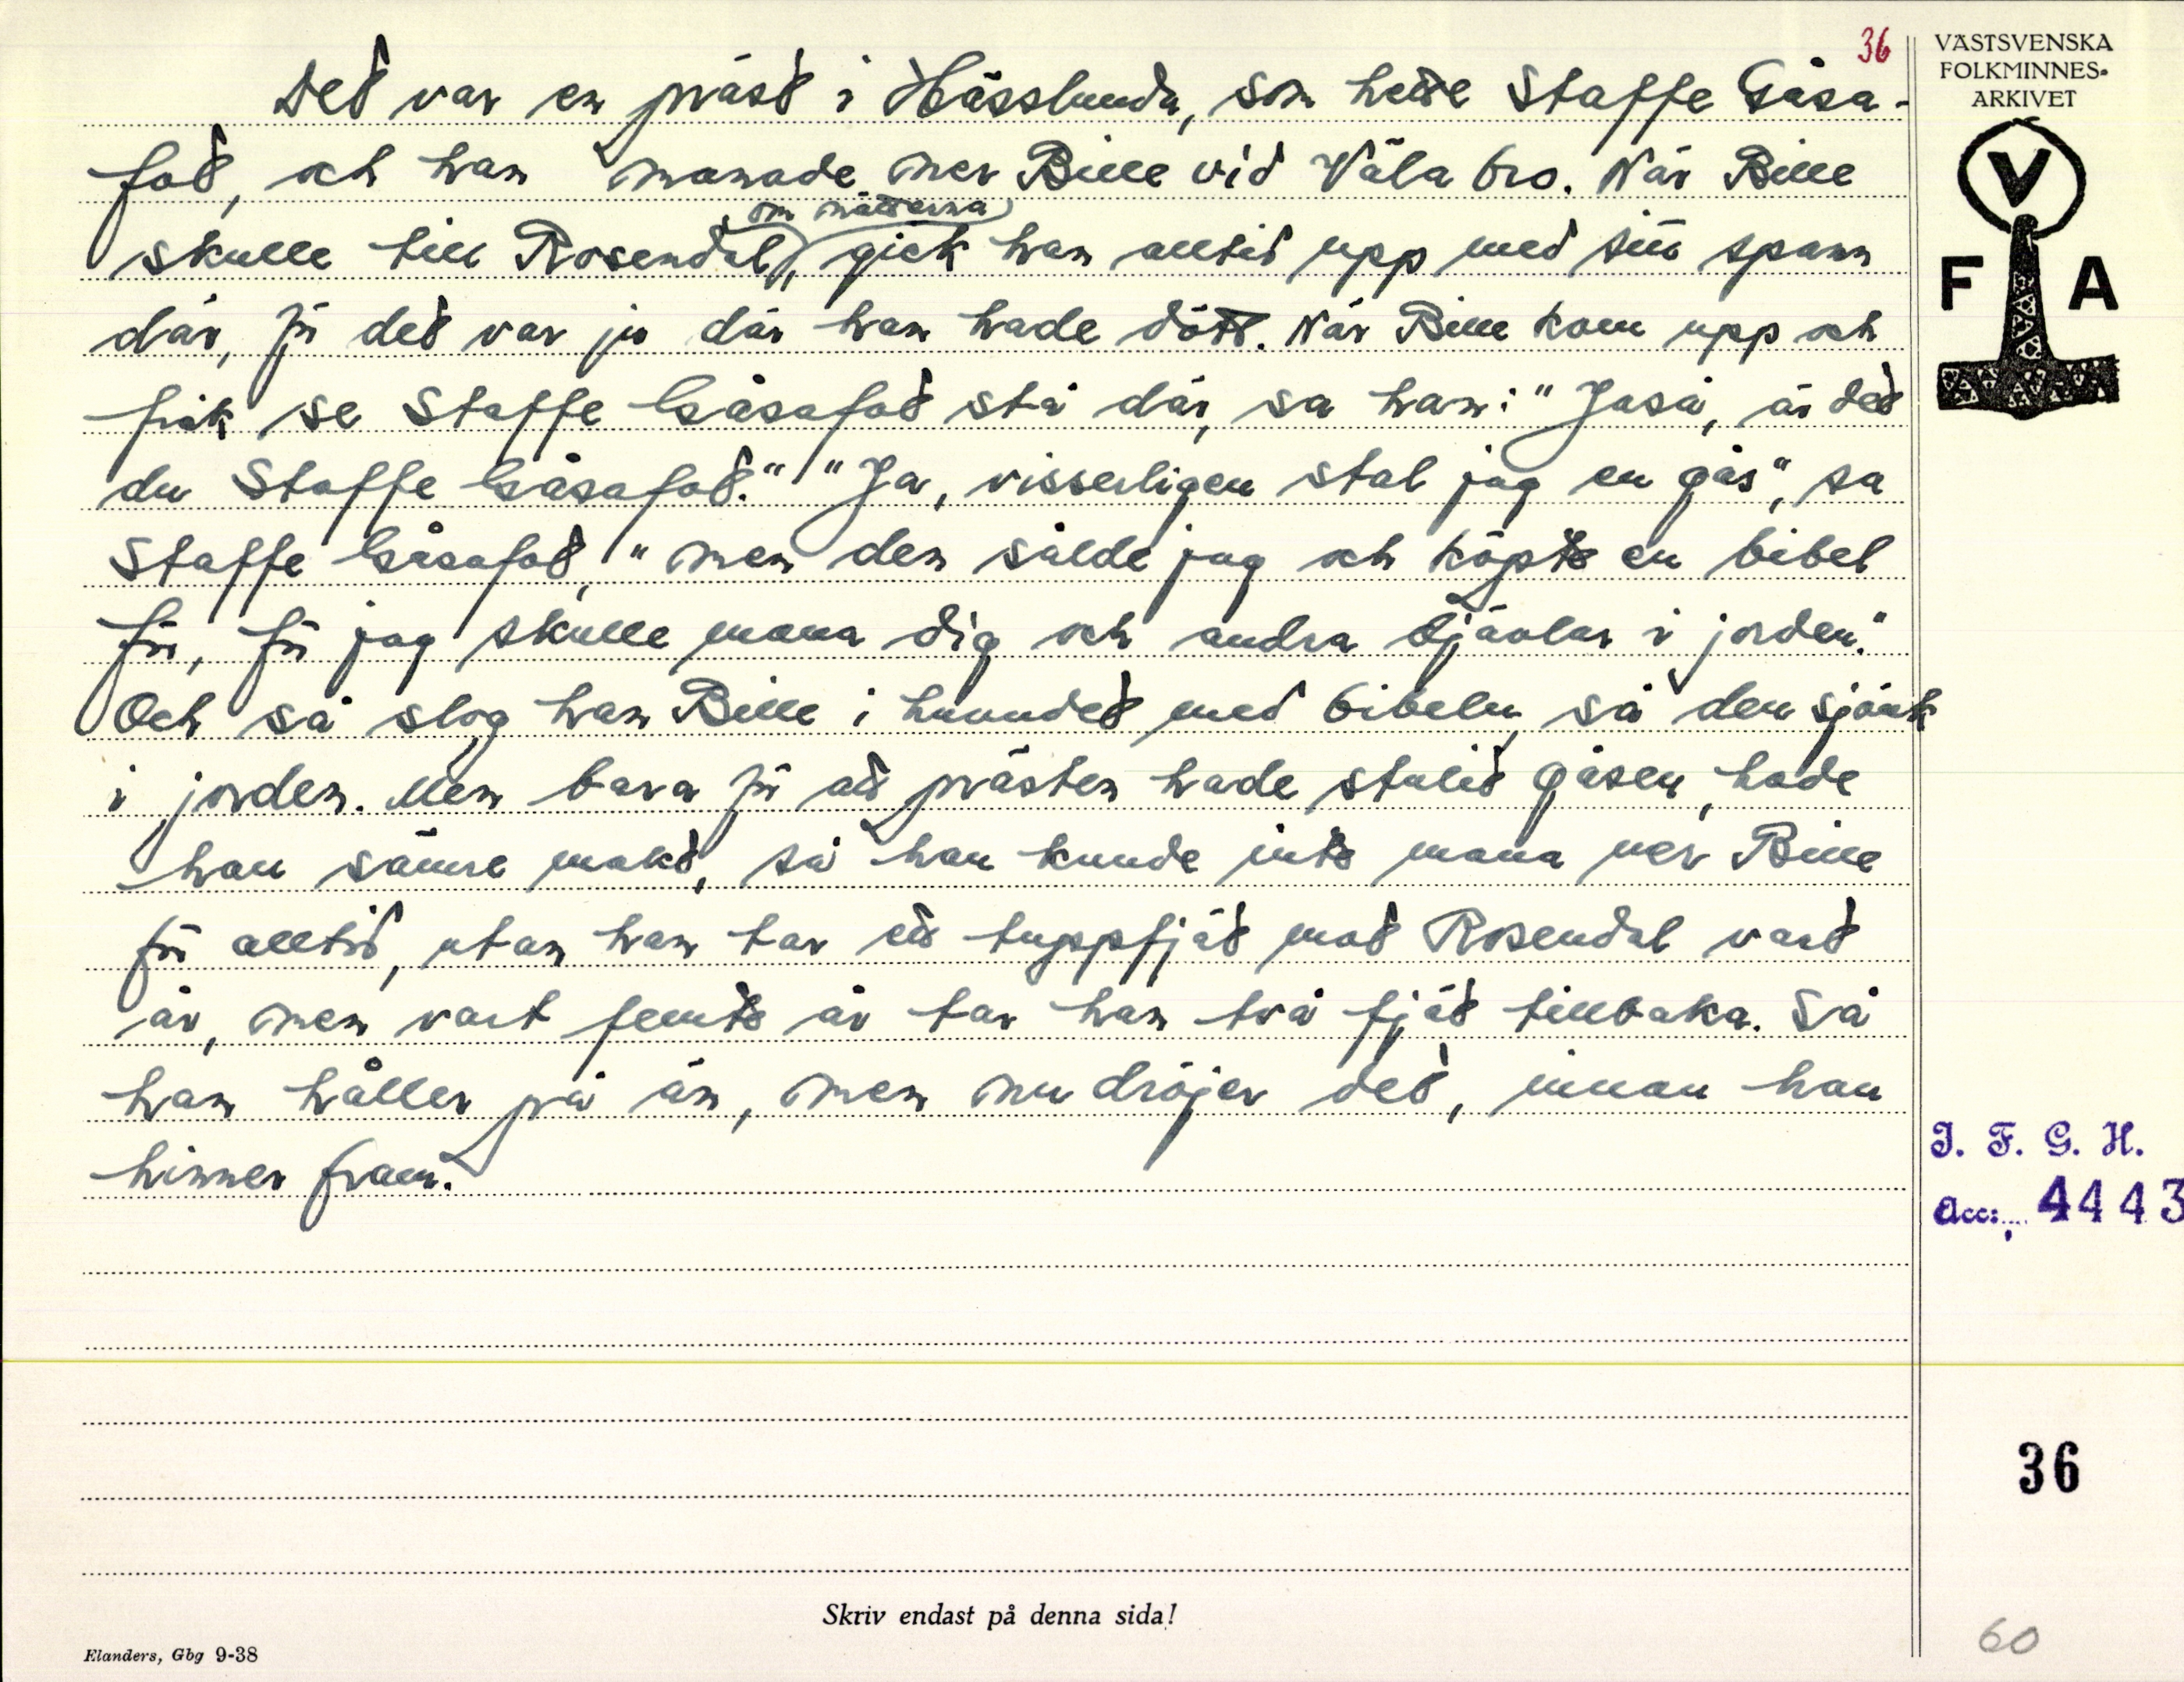 36
VÄSTSVENSKA
FOLKMINNES-
ARKIVET
V
F A
Det var en präst i Hässlunda, som hette Staffe Gåsa-
fot, och han manade ner Bille vid Väla bro. När Bille
om nätterna
skulle till Rosendal, gick han alltid upp med sitt spann
där, för det var ju där han hade dött. När Bille kom upp och
fick se Staffe Gåsafot stå där, sa han: "Jaså, är det
du Staffe Gåsafot." "Ja, visserligen stal jag en gås", sa
Staffe Gåsafot, "men den sålde jag och köpte en bibel
för, för jag skulle mana dig och andra djävlar i jorden."
Och så slog han Bille i huvudet med bibeln, så den sjönk
i jorden. Men bara för att prästen hade stulit gåsen, hade
han sämre makt, så han kunde inte mana ner Bille
för alltid, utan han tar ett tuppfjät mot Rosendal vart
år, men vart femte år tar han två fjät tillbaka. Så
han håller på än, men nu dröjer det, innan han
hinner fram.
I. F. G. H.
Acc: 4443
36
Skriv endast på denna sida!
Elanders, Gbg 9-38
60